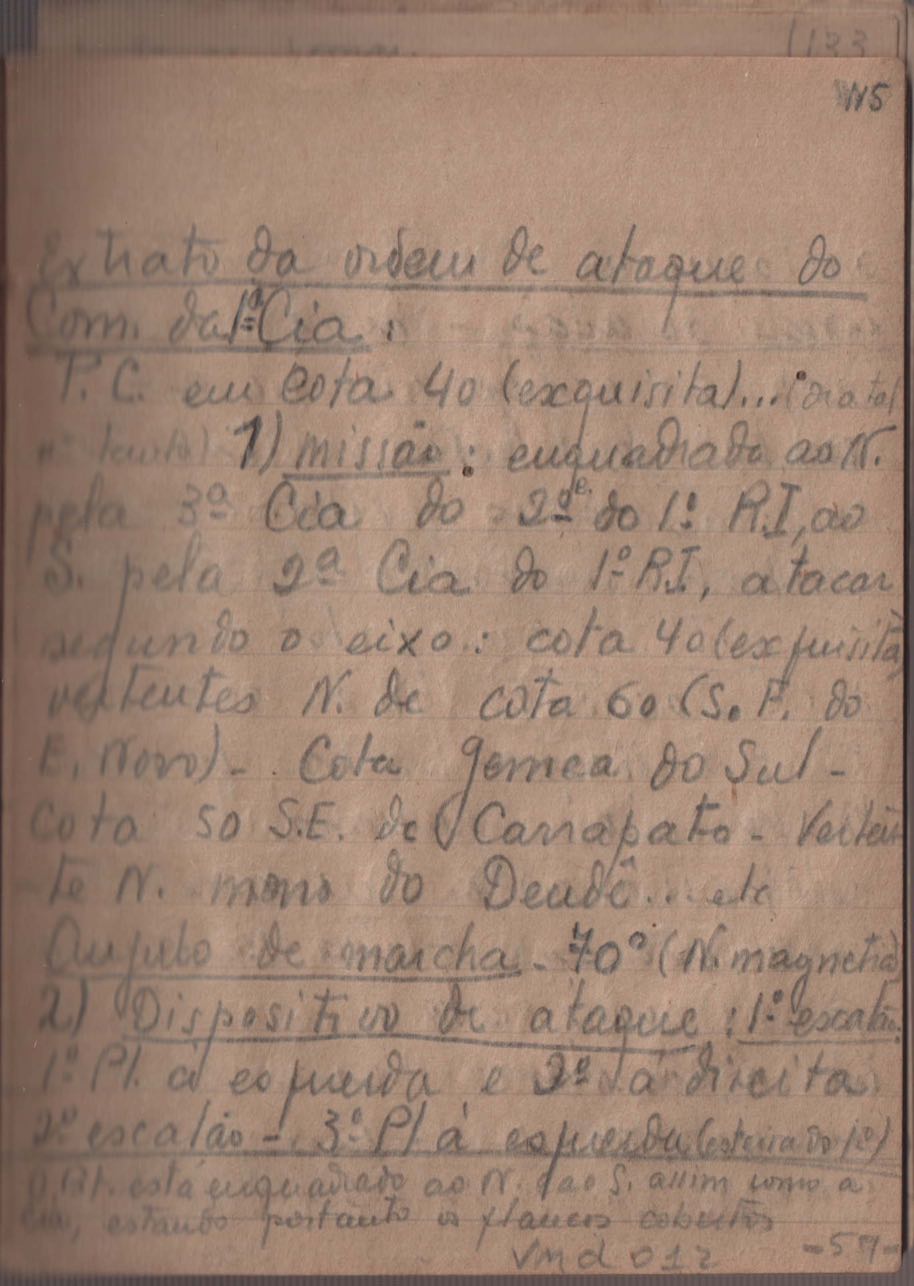 1133
W5
Extrato da ordem de ataque do
Com. da 1ª Cia:
P.C. em cota 40 (exquisita)... (dia tal
n: tanto) 1) missão: enquadrado ao N.
pela 3ª Cia do 2º do 1º R.I, ao
S. pela 2ª Cia do 1º R.I, atacar
segundo o eixo: cota 40 (exquisita)
vertentes N. de cota 60 (S. F. do
E. Novo) - Cota gemea do Sul -
Cota 50 S.E. de Carrapato - Verten-
te N. morro do Deudê... etc
Angulo de marcha - 70° (N. magnetico)
2) Dispositivo de ataque: 1º escalão
1º Pl. á esquerda e 2º á direita
2º escalão - 3º Pl á esquerda (esteira do 1º)
O Pel. está enquadrado ao N. e ao S. assim como a
Cia, estando portanto os flancos cobertos
Vmd 012 -57-